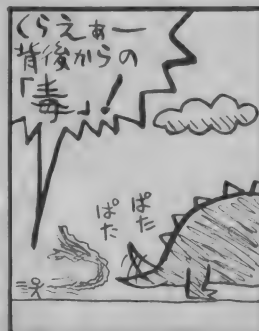 くらえぁー
背後からの
「毒」!
ぱた
ぱた